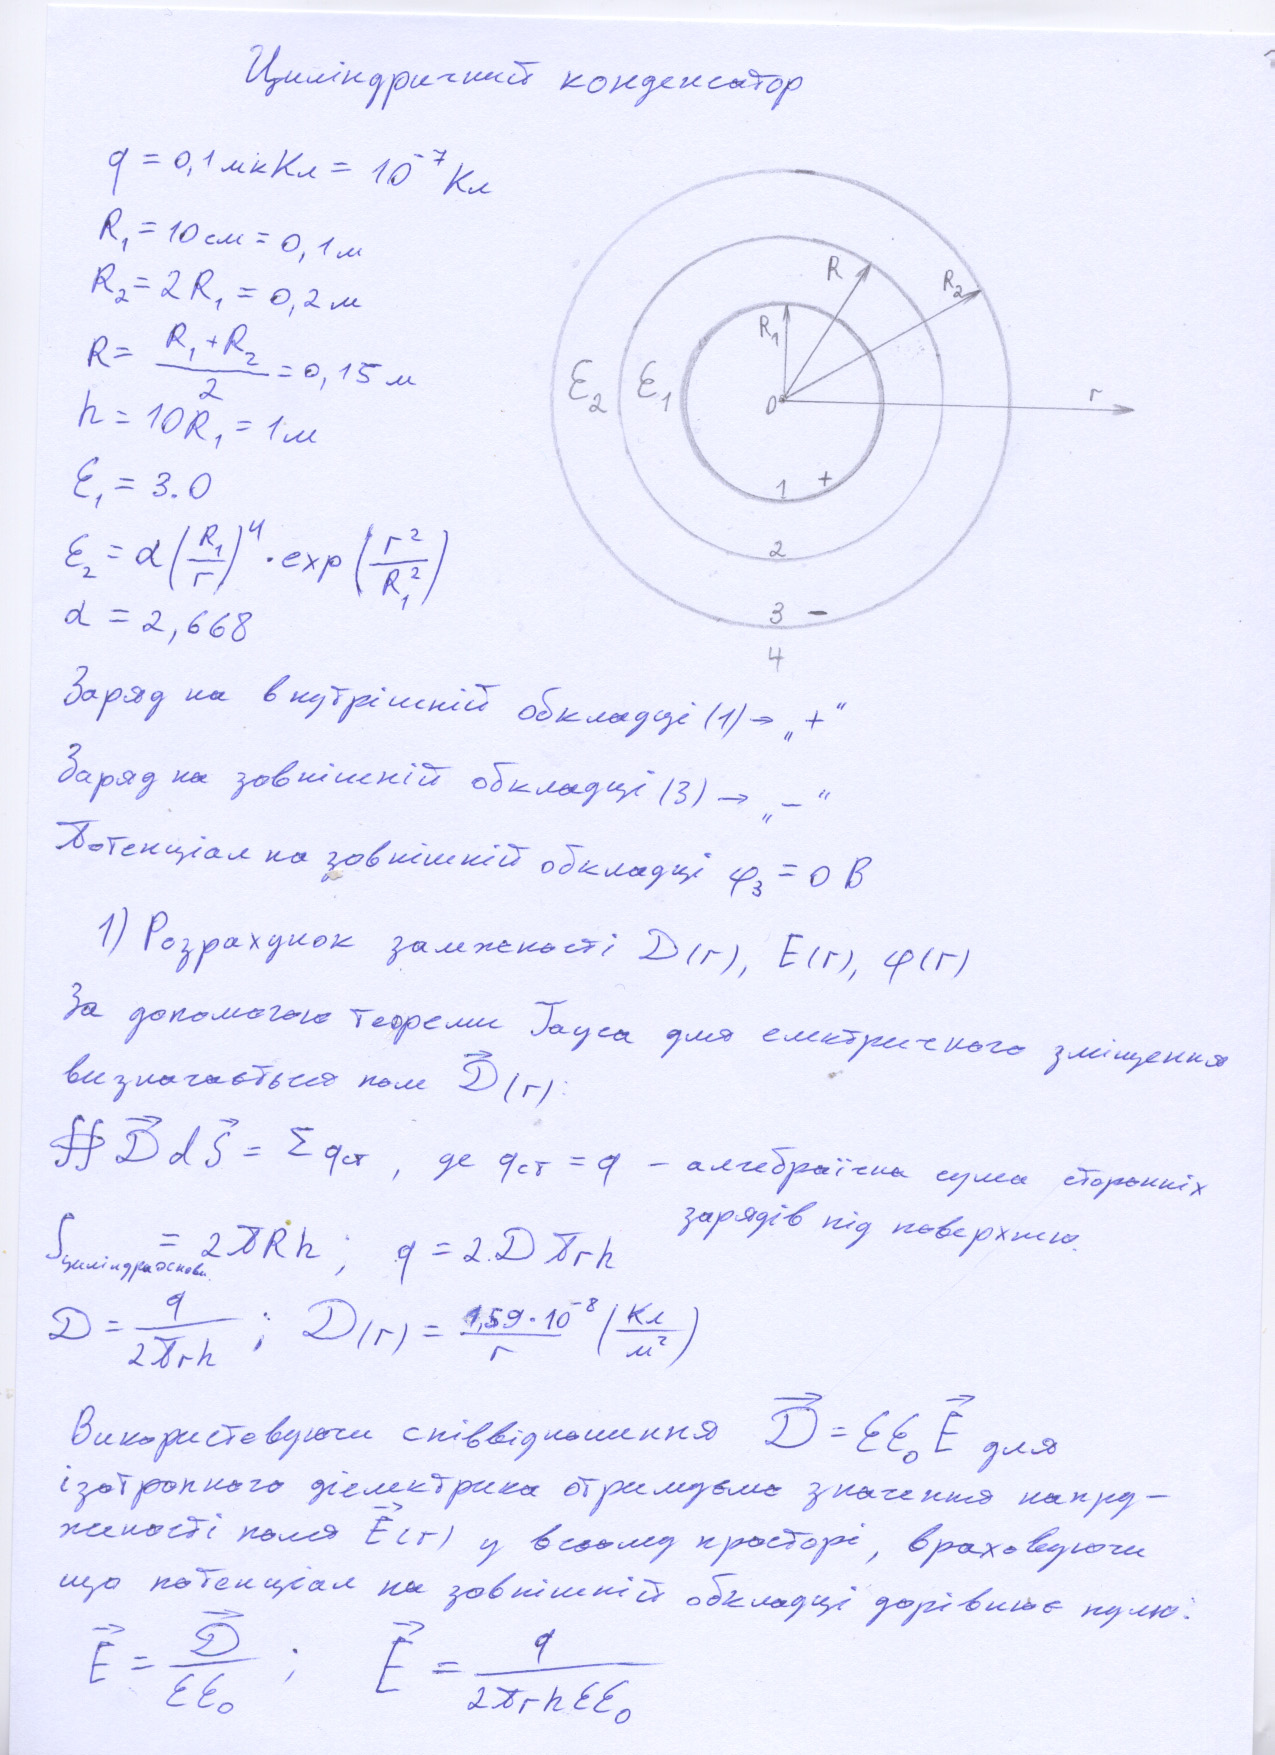 Циліндричний конденсатор
q = 0,1 мкКл = 10⁻⁷ Кл
R₁ = 10 см = 0,1 м
R₂ = 2R₁ = 0,2 м
R = (R₁ + R₂)/2 = 0,15 м
h = 10R₁ = 1 м
ε₁ = 3.0
ε₂ = α (R₁/r)⁴ · exp (r²/R₁²)
α = 2,668
R
R₂
R₁
ε₂ ε₁
0
r
1 +
2
3 −
4
Заряд на внутрішній обкладці (1) → „+“
Заряд на зовнішній обкладці (3) → „−“
Потенціал на зовнішній обкладці φ₃ = 0 В
1) Розрахунок залежності D(r), E(r), φ(r)
За допомогою теореми Гауса для електричного зміщення
визначається поле D⃗(r):
∯ D⃗ dS⃗ = Σ qст , де qст = q – алгебраїчна сума сторонніх
зарядів під поверхнею.
S циліндра основи = 2πRh ; q = 2·Dπrh
D = q/(2πrh) ; D(r) = 1,59·10⁻⁸/r (Кл/м²)
Використовуючи співвідношення D⃗ = εε₀E⃗ для
ізотропного діелектрика отримуємо значення напру-
женості поля E⃗(r) у всьому просторі, враховуючи
що потенціал на зовнішній обкладці дорівнює нулю:
E⃗ = D⃗/(εε₀) ; E⃗ = q/(2πrhεε₀)